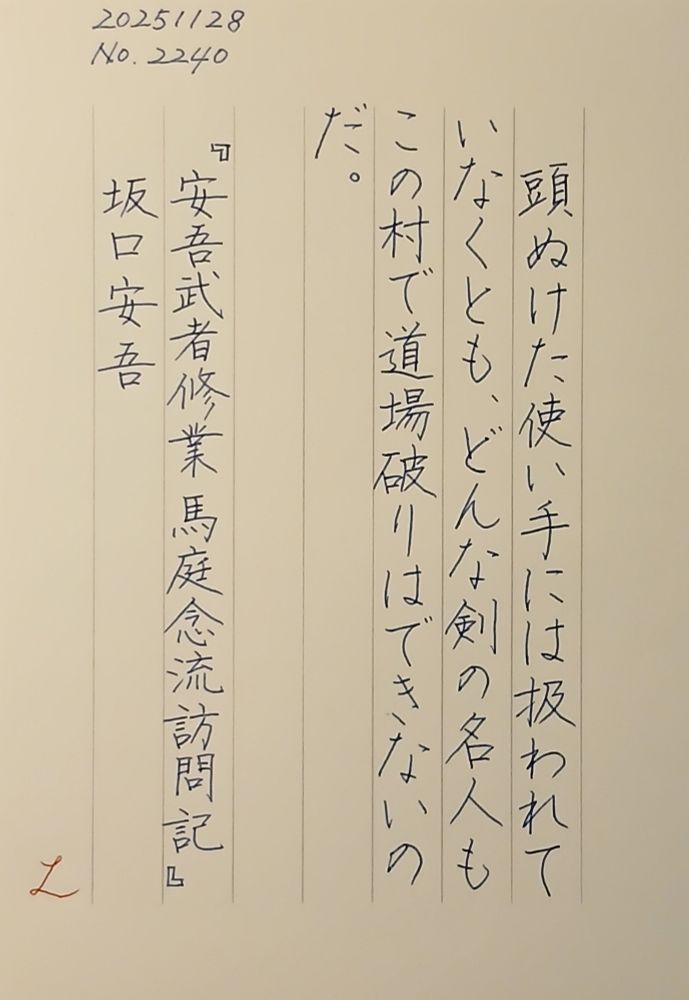 20251128
No. 2240
頭ぬけた使い手には扱われて
いなくとも、どんな剣の名人も
この村で道場破りはできないの
だ。
『安吾武者修業 馬庭念流訪問記』
坂口安吾